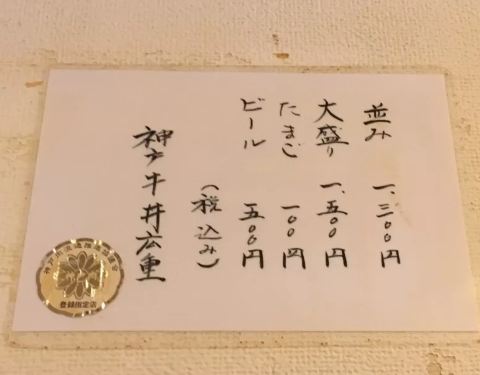 並み 一、三〇〇円
大盛り 一、五〇〇円
たまご 一〇〇円
ビール 五〇〇円
(税込み)
神戸牛丼広重
登録指定店